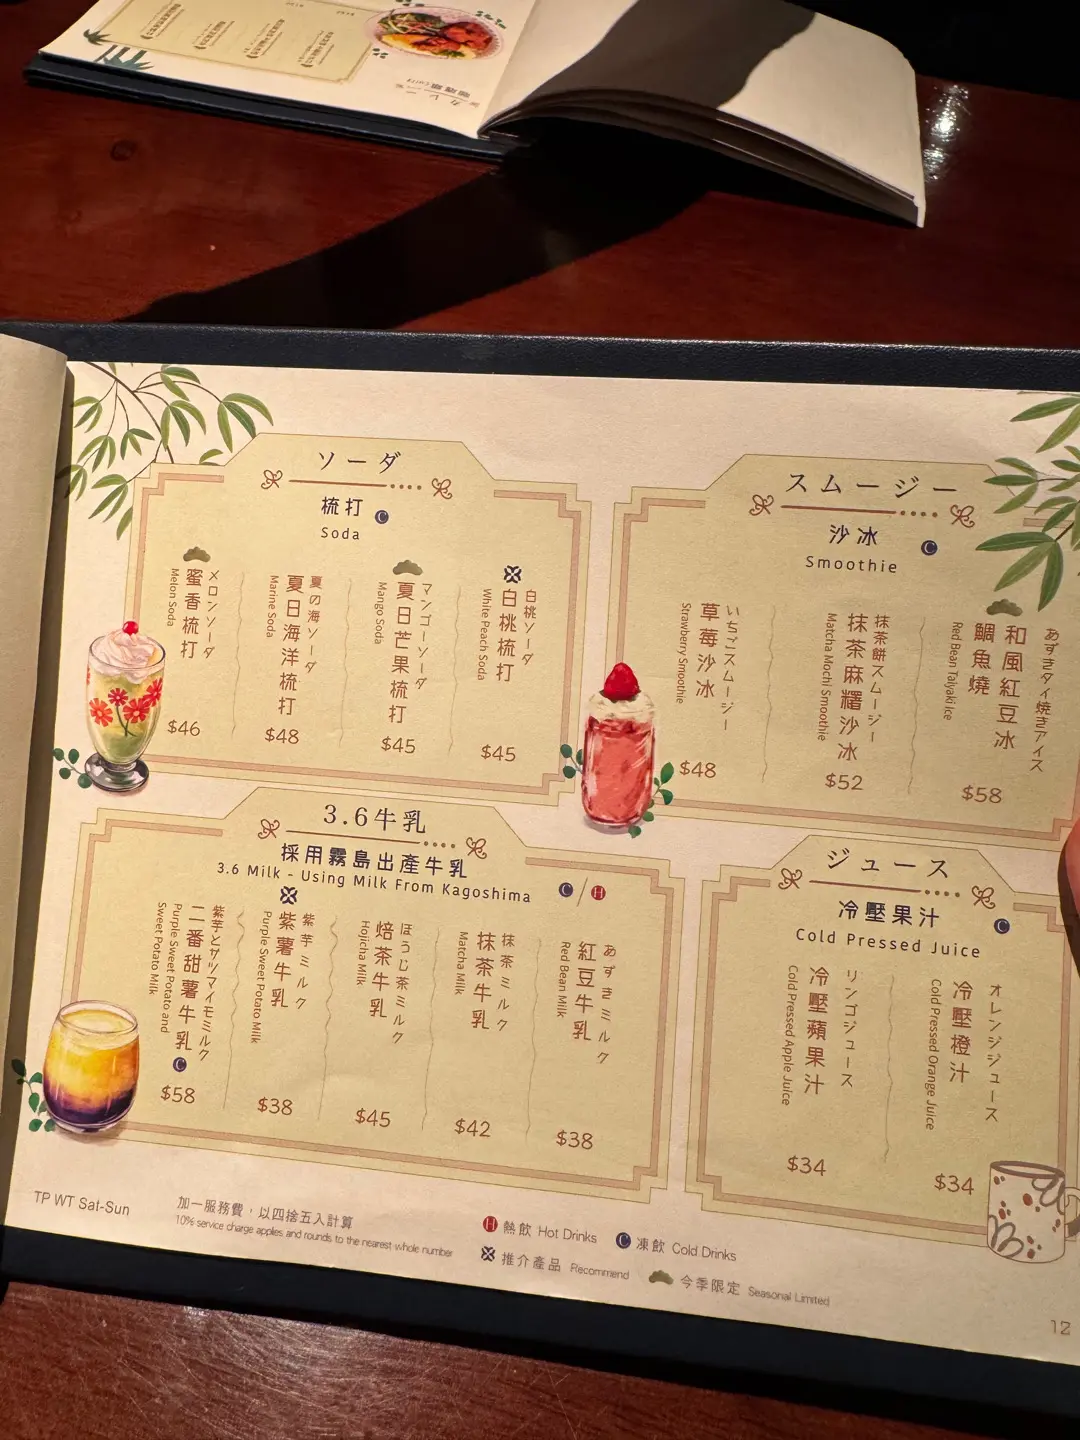 ソーダ
梳打 C
Soda
メロンソーダ
蜜香梳打
Melon Soda
$46
夏の海ソーダ
夏日海洋梳打
Marine Soda
$48
マンゴーソーダ
夏日芒果梳打
Mango Soda
$45
白桃ソーダ
白桃梳打
White Peach Soda
$45
スムージー
沙冰 C
Smoothie
いちごスムージー
草莓沙冰
Strawberry Smoothie
$48
抹茶餅スムージー
抹茶麻糬沙冰
Matcha Mochi Smoothie
$52
あずきタイ焼きアイス
和風紅豆冰
鯛魚燒
Red Bean Taiyaki ice
$58
3.6牛乳
採用霧島出產牛乳
3.6 Milk - Using Milk From Kagoshima
C / H
紫芋とサツマイモミルク
二番甜薯牛乳 C
Purple Sweet Potato and
Sweet Potato Milk
$58
紫芋ミルク
紫薯牛乳
Purple Sweet Potato Milk
$38
ほうじ茶ミルク
焙茶牛乳
Hojicha Milk
$45
抹茶ミルク
抹茶牛乳
Matcha Milk
$42
あずきミルク
紅豆牛乳
Red Bean Milk
$38
ジュース
冷壓果汁 C
Cold Pressed Juice
リンゴジュース
冷壓蘋果汁
Cold Pressed Apple Juice
$34
オレンジジュース
冷壓橙汁
Cold Pressed Orange Juice
$34
TP WT Sat-Sun
加一服務費，以四捨五入計算
10% service charge applies and rounds to the nearest whole number
H 熱飲 Hot Drinks C 凍飲 Cold Drinks
推介產品 Recommend 今季限定 Seasonal Limited
12